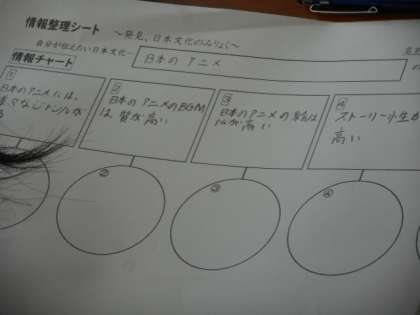 情報整理シート ~発見、日本文化のみりょく~
自分が伝えたい日本文化…
日本のアニメ
情報チャート
①
日本のアニメには、
様々なジャンルが
②
日本のアニメのBGM
は、質が高い
③
日本のアニメの
が高い
④
ストーリー性が
高い
②
③
④